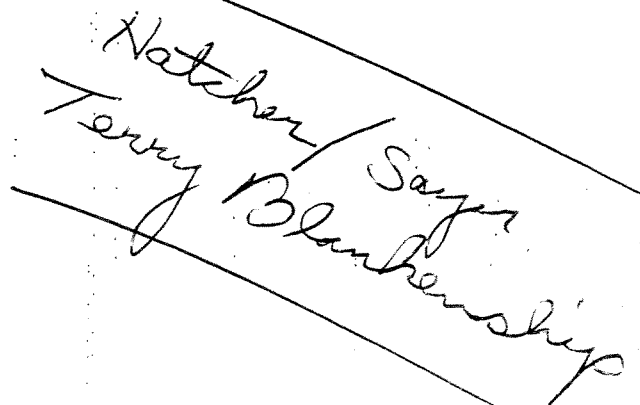 Hatcher/Sayer
Terry Blankenship